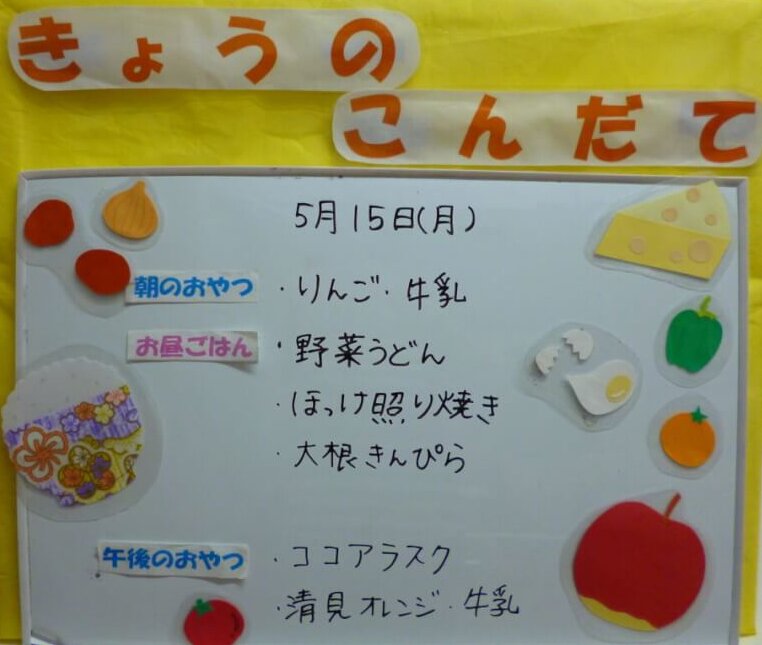 きょうの
こんだて
5月15日(月)
朝のおやつ ・りんご・牛乳
お昼ごはん ・野菜うどん
・ほっけ照り焼き
・大根きんぴら
午後のおやつ ・ココアラスク
・清見オレンジ・牛乳